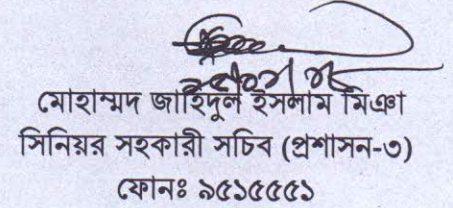 মোহাম্মদ জাহিদুল ইসলাম মিঞা
সিনিয়র সহকারী সচিব (প্রশাসন-৩)
ফোনঃ ৯৫১৫৫৫১